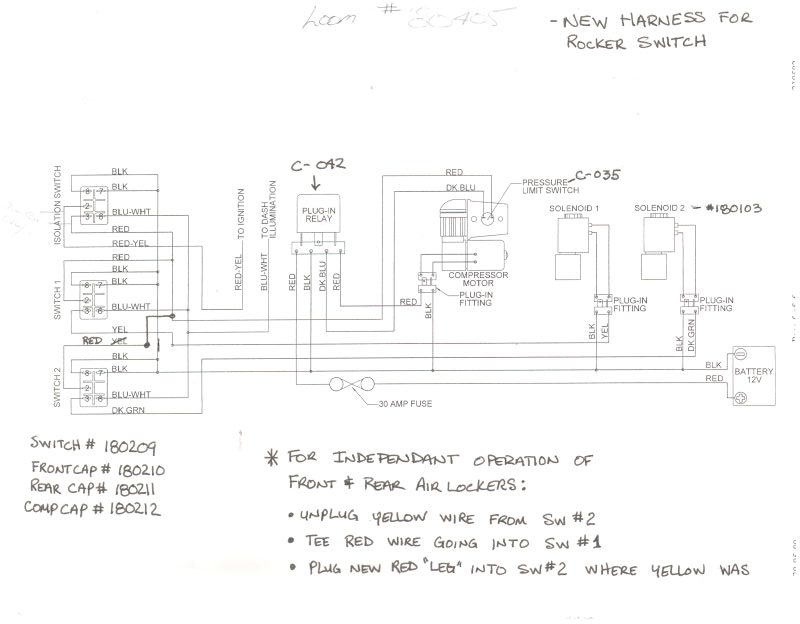 Loom # 180405
- NEW HARNESS FOR
ROCKER SWITCH
ISOLATION SWITCH
BLK
8 7
BLK
2
3 6
BLU-WHT
RED
RED-YEL
RED
SWITCH 1
BLK
8 7
BLK
2
3 6
BLU-WHT
YEL
RED YEL
SWITCH 2
BLK
8 7
BLK
2
3 6
BLU-WHT
DK.GRN
RED-YEL
TO IGNITION
BLU-WHT
TO DASH
ILLUMINATION
C-042
PLUG-IN
RELAY
RED
BLK
DK.BLU
RED
RED
DK.BLU
PRESSURE
LIMIT SWITCH
C-035
COMPRESSOR
MOTOR
PLUG-IN
FITTING
RED
BLK
SOLENOID 1
PLUG-IN
FITTING
BLK
YEL
SOLENOID 2 - #180103
PLUG-IN
FITTING
BLK
DK.GRN
BLK
RED
BATTERY
12V
30 AMP FUSE
SWITCH # 180209
FRONT CAP # 180210
REAR CAP # 180211
COMP CAP # 180212
* FOR INDEPENDANT OPERATION OF
FRONT & REAR AIR LOCKERS:
• UNPLUG YELLOW WIRE FROM SW #2
• TEE RED WIRE GOING INTO SW #1
• PLUG NEW RED "LEG" INTO SW#2 WHERE YELLOW WAS